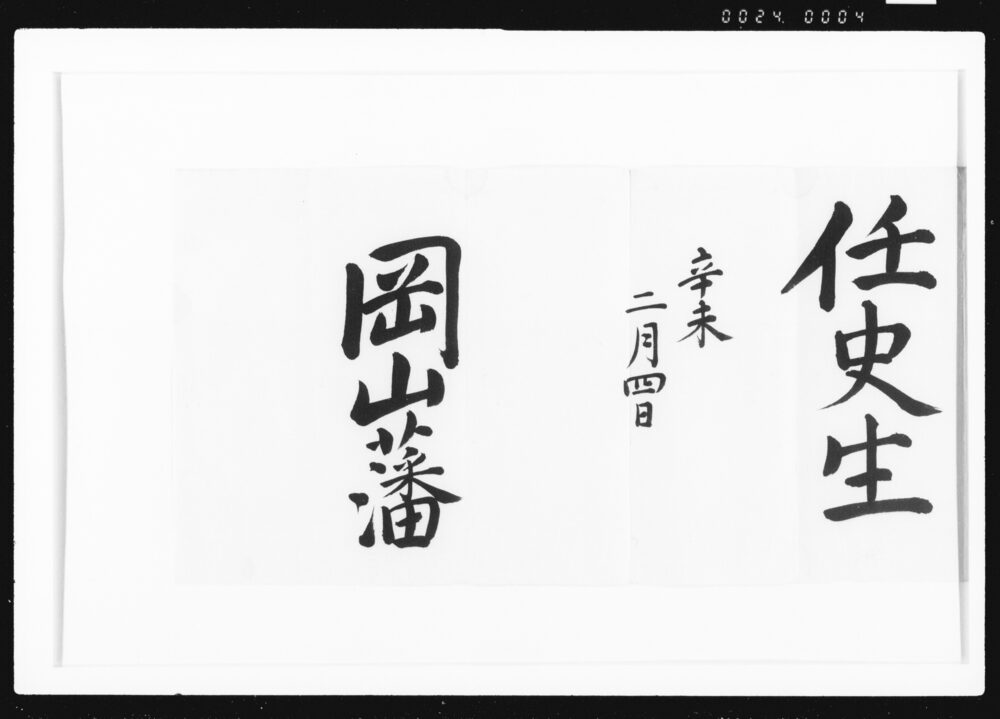 0024.0004
任史生
辛未
二月四日
岡山藩